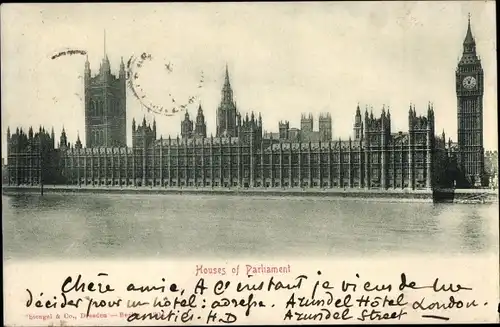 Houses of Parliament
Chère amie, A l'instant je viens de me
décider pour un hôtel: adresse. Arundel Hôtel London.
Stengel & Co., Dresden
amitiés. H.D Arundel Street